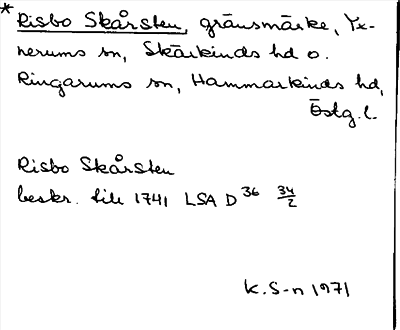 * Risbo Skårsten, gränsmärke, Yx-
nerums sn, Skärkinds hd o.
Ringarums sn, Hammarkinds hd,
Östg.l.
Risbo Skårsten
beskr. till 1741 LSA D 36 34/2
K.S-n 1971